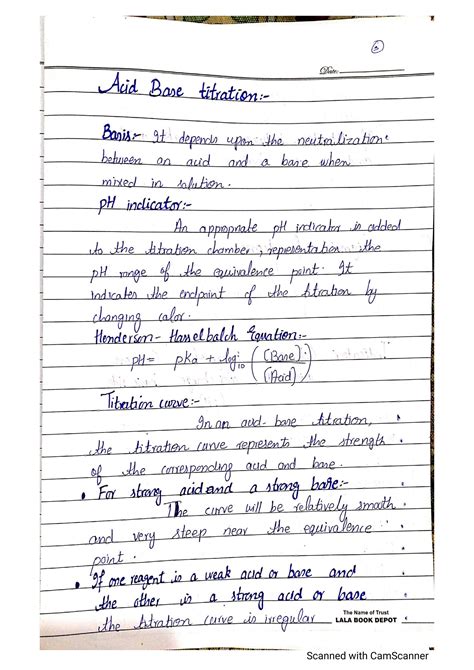 Date:
Acid Base titration:-
Basis:- It depends upon the neutralization
between an acid and a base when
mixed in solution.
pH indicator:-
An appropriate pH indicator is added
to the titration chamber, representation the
pH range of the equivalence point. It
indicates the endpoint of the titration by
changing color.
Henderson- Hasselbalch Equation:-
pH= pKa + log10 ( (Base) / (Acid) )
Titration curve:-
In an acid- base titration,
the titration curve represents the strength
of the corresponding acid and base.
• For strong acid and a strong base:-
The curve will be relatively smooth
and very steep near the equivalence
point.
• If one reagent is a weak acid or base and
the other is a strong acid or base
the titration curve is irregular
The Name of Trust
LALA BOOK DEPOT
Scanned with CamScanner